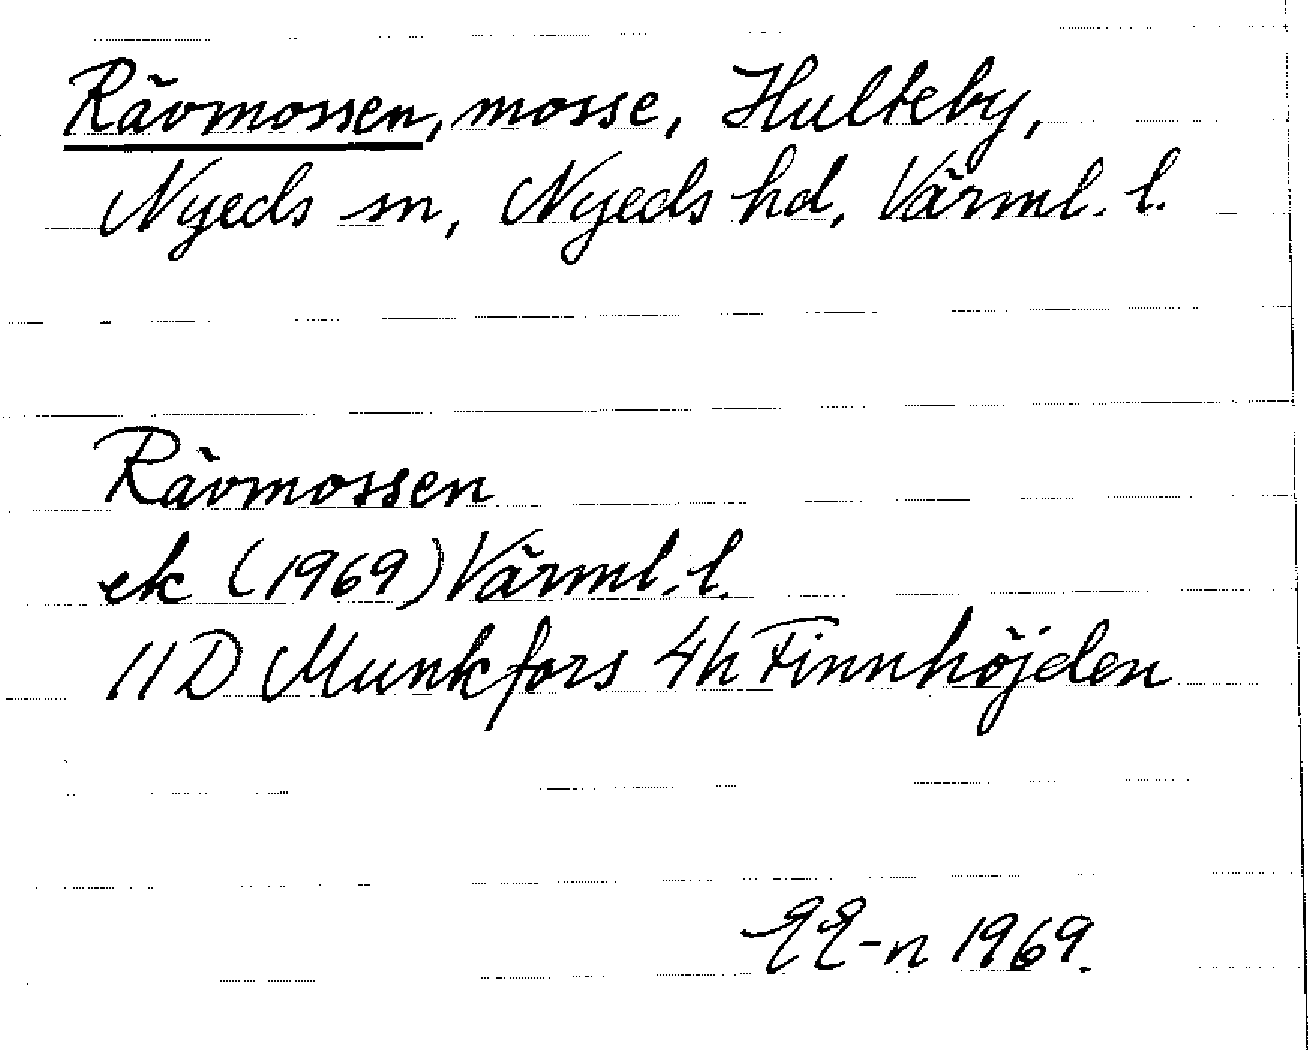 Rävmossen, mosse, Hulteby,
Nyeds sn, Nyeds hd, Värml. l.
Rävmossen
ek (1969) Värml. l.
11D Munkfors 4h Finnhöjden
EE-n 1969.